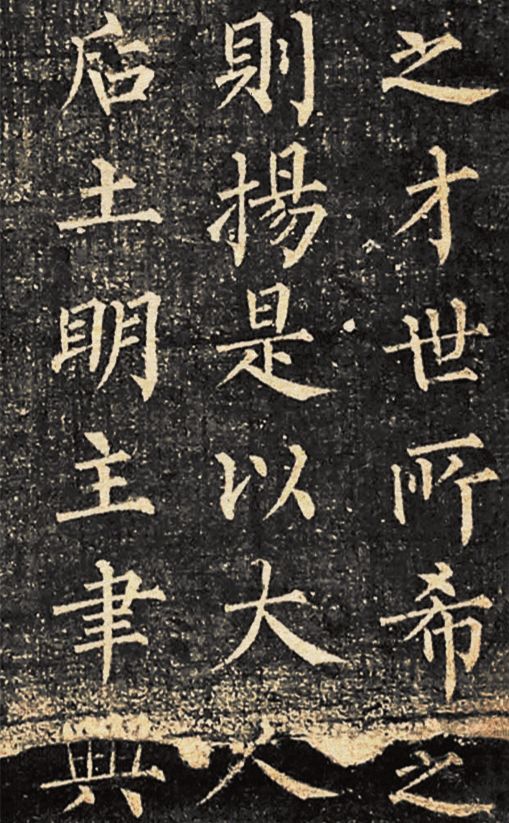 之才世所希之
則揚是以大人
后土明主聿興